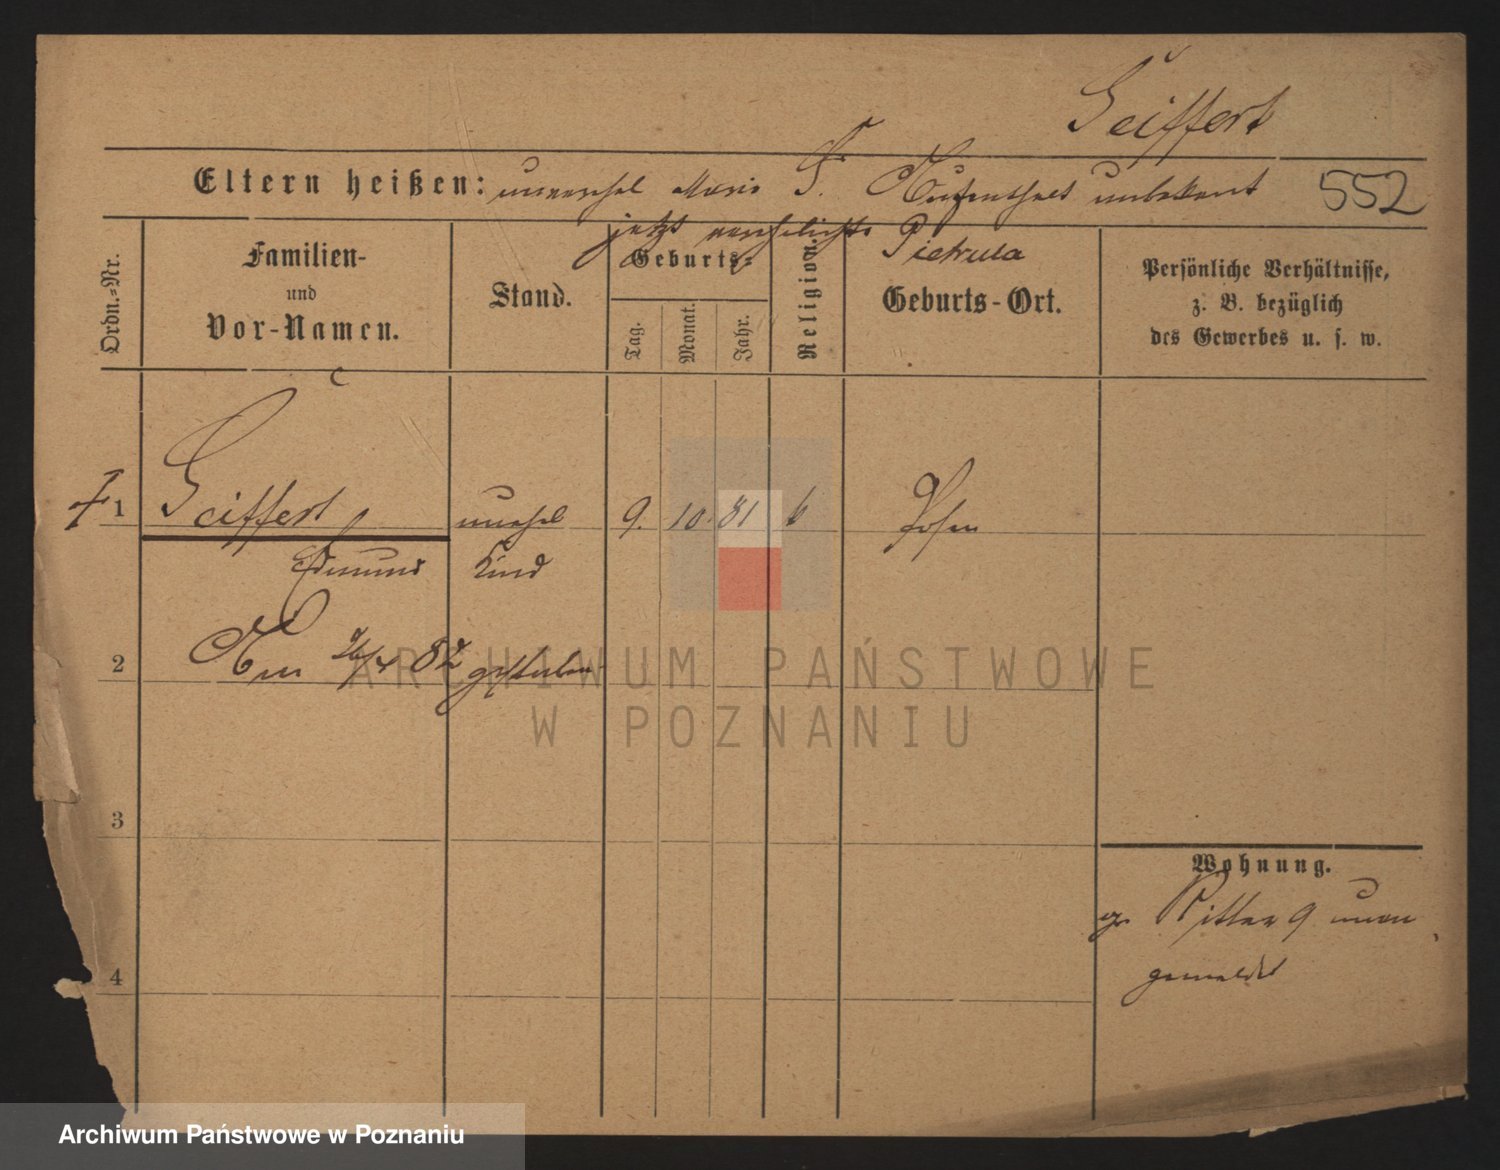 Seiffert
Eltern heißen: unverehel Marie S. Aufenthalt unbekannt
552
jetzt verehelichte Pietrula
Ordn.-Nr.
Familien-
und
Vor-Namen.
Stand.
Geburts-
Tag.
Monat.
Jahr.
Religion.
Geburts-Ort.
Persönliche Verhältnisse,
z. B. bezüglich
des Gewerbes u. s. w.
1 Seiffert unehel 9. 10. 81 Posen
Edmund Kind
2 Am 26/4 82 gestorben
3
Wohnung.
gr Ritter 9 unan
gemeldet
4
ARCHIWUM PAŃSTWOWE
W POZNANIU
Archiwum Państwowe w Poznaniu